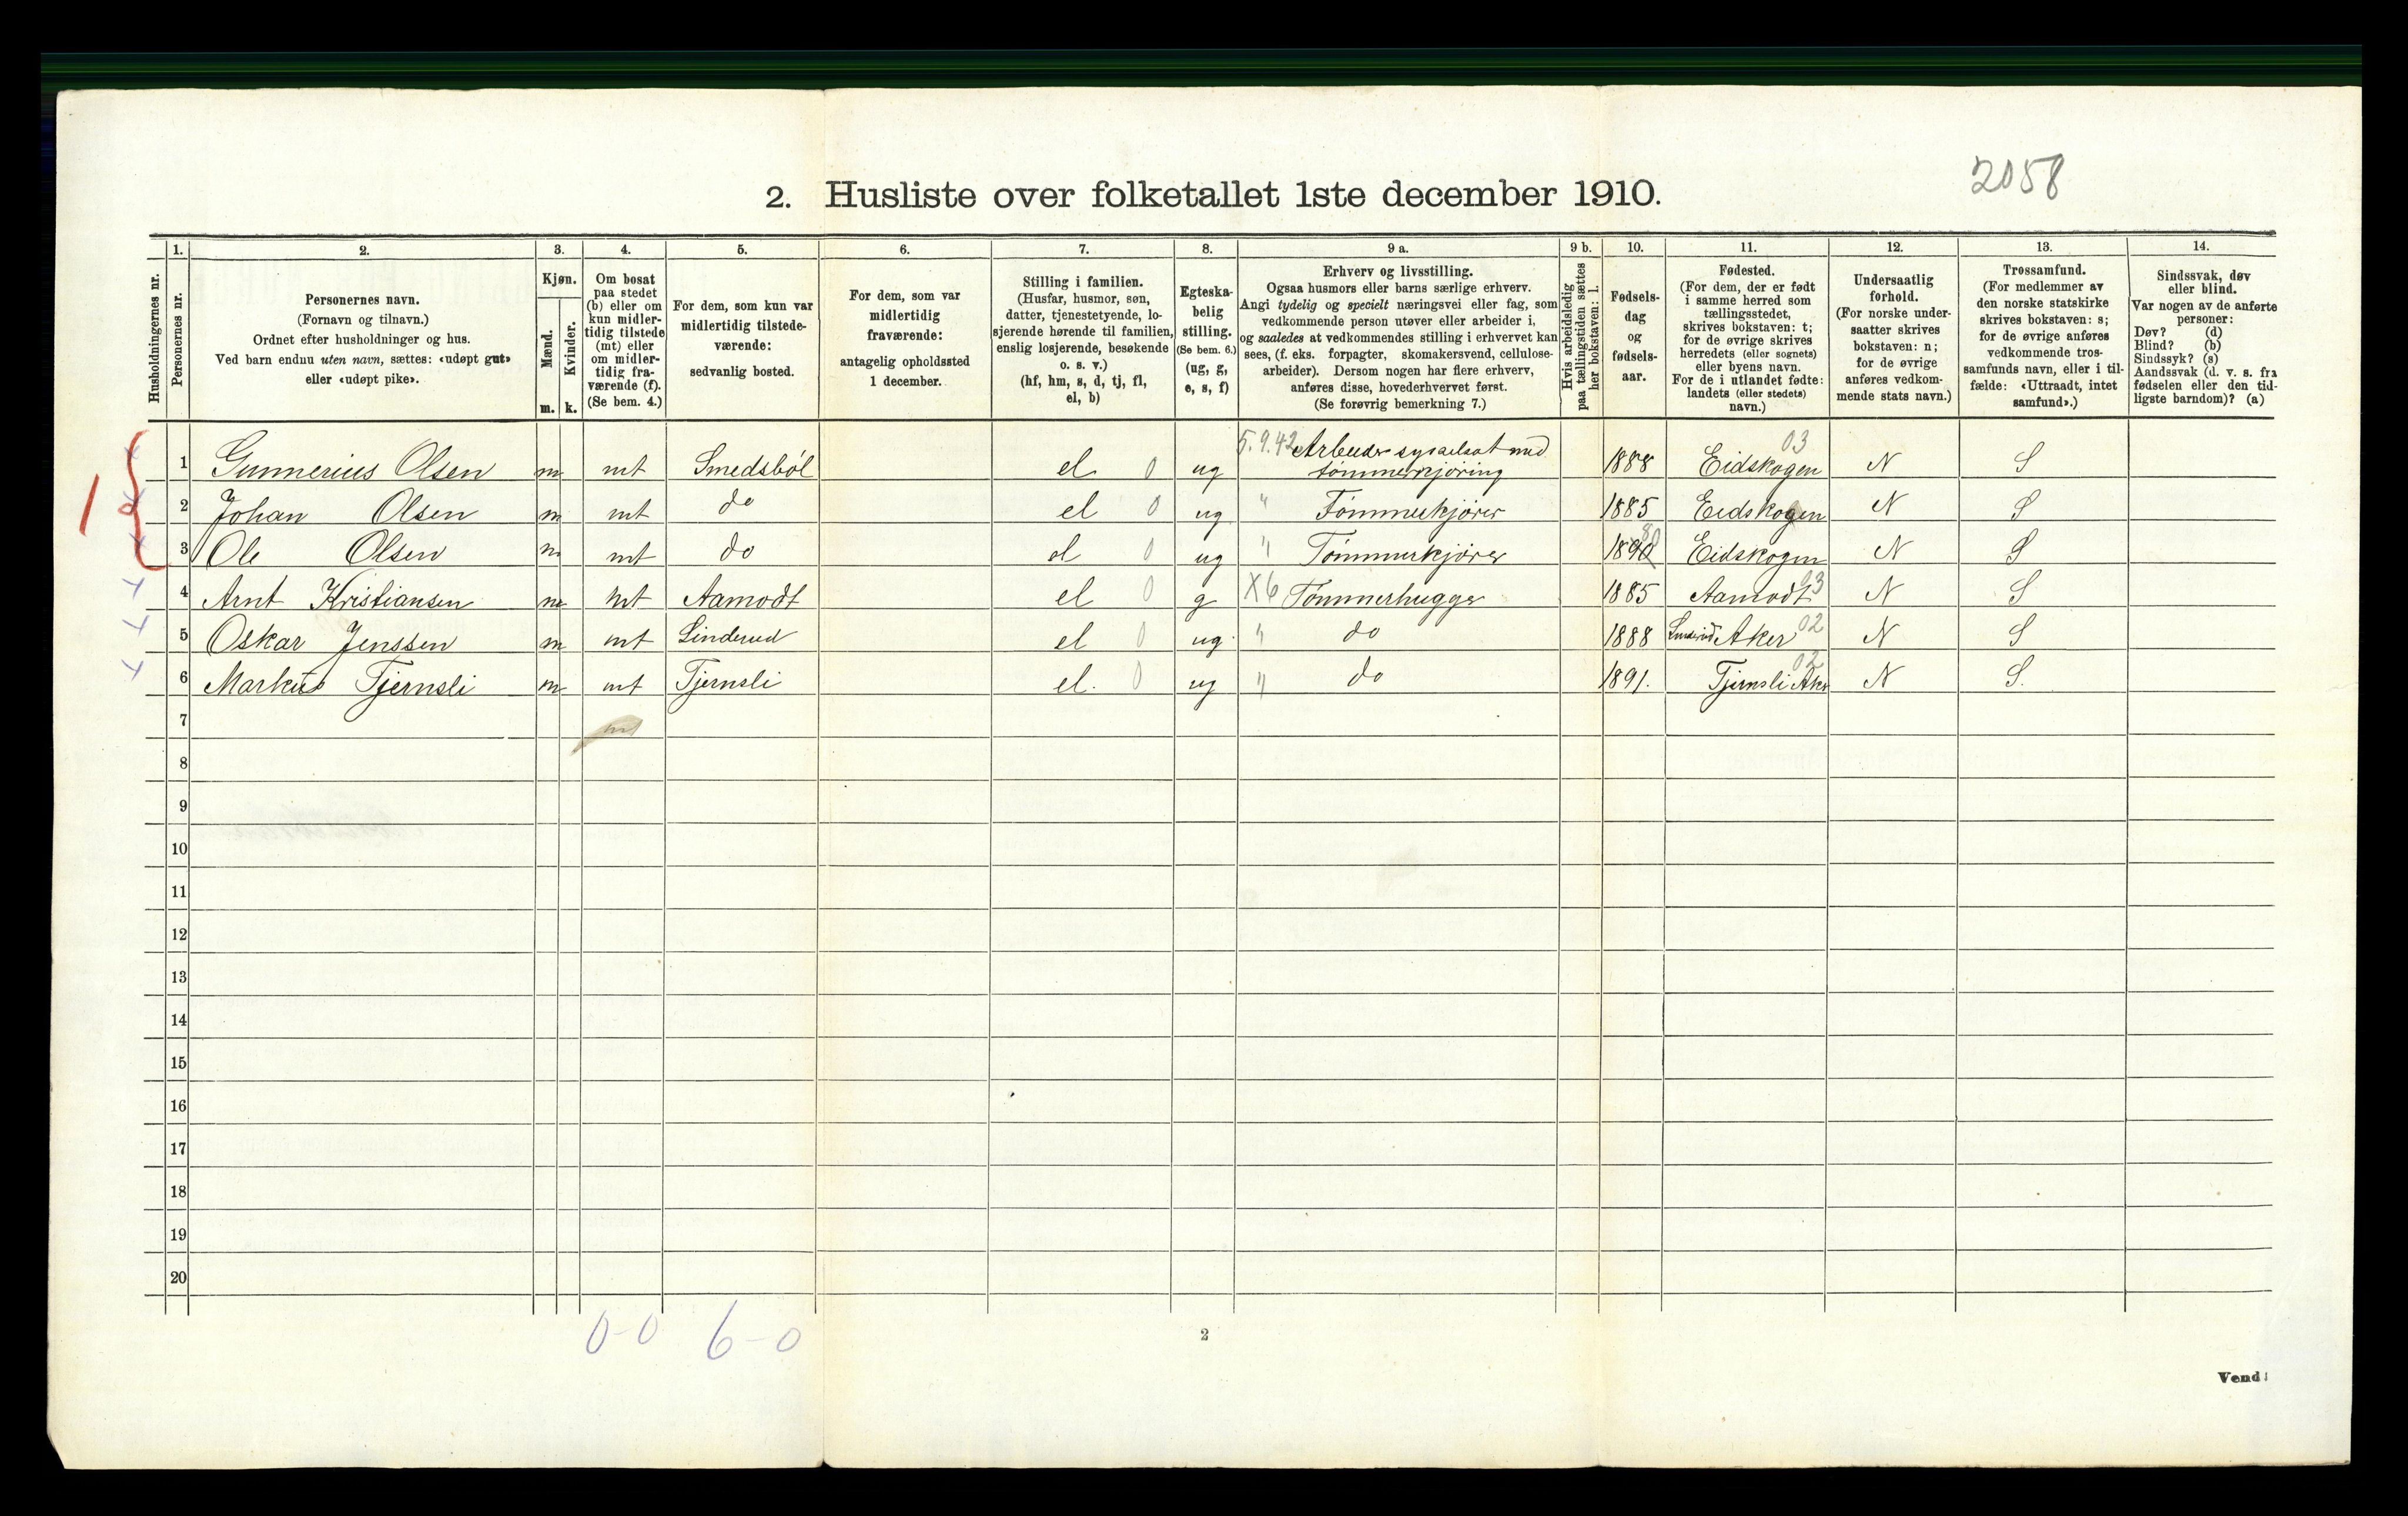 2058
2. Husliste over folketallet 1ste december 1910.
Husholdningernes nr.
1. Personernes nr.
2. Personernes navn.
(Fornavn og tilnavn.)
Ordnet efter husholdninger og hus.
Ved barn endnu uten navn, sættes: «udøpt gut»
eller «udøpt pike».
3. Kjøn.
Mænd. m.
Kvinder. k.
4. Om bosat
paa stedet
(b) eller om
kun midler-
tidig tilstede
(mt) eller
om midler-
tidig fra-
værende (f).
(Se bem. 4.)
5. For dem, som kun var
midlertidig tilstede-
værende:
sedvanlig bosted.
6. For dem, som var
midlertidig
fraværende:
antagelig opholdssted
1 december.
7. Stilling i familien.
(Husfar, husmor, søn,
datter, tjenestetyende, lo-
sjerende hørende til familien,
enslig losjerende, besøkende
o. s. v.)
(hf, hm, s, d, tj, fl,
el, b)
8. Egteska-
belig
stilling.
(Se bem. 6.)
(ug, g,
e, s, f)
9 a. Erhverv og livsstilling.
Ogsaa husmors eller barns særlige erhverv.
Angi tydelig og specielt næringsvei eller fag, som
vedkommende person utøver eller arbeider i,
og saaledes at vedkommendes stilling i erhvervet kan
sees, (f. eks. forpagter, skomakersvend, cellulose-
arbeider). Dersom nogen har flere erhverv,
anføres disse, hovederhvervet først.
(Se forøvrig bemerkning 7.)
9 b. Hvis arbeidsledig
paa tællingstiden sættes
her bokstaven: l.
10. Fødsels-
dag
og
fødsels-
aar.
11. Fødested.
(For dem, der er født
i samme herred som
tællingsstedet,
skrives bokstaven: t;
for de øvrige skrives
herredets (eller sognets)
eller byens navn.
For de i utlandet fødte:
landets (eller stedets)
navn.)
12. Undersaatlig
forhold.
(For norske under-
saatter skrives
bokstaven: n;
for de øvrige
anføres vedkom-
mende stats navn.)
13. Trossamfund.
(For medlemmer av
den norske statskirke
skrives bokstaven: s;
for de øvrige anføres
vedkommende tros-
samfunds navn, eller i til-
fælde: «Uttraadt, intet
samfund».)
14. Sindssvak, døv
eller blind.
Var nogen av de anførte
personer:
Døv? (d)
Blind? (b)
Sindssyk? (s)
Aandssvak (d. v. s. fra
fødselen eller den tid-
ligste barndom)? (a)
1 Gunnerius Olsen m mt Smedsböl el 0 ug 5.9.42 Arbeider sysselsat med tömmerkjöring 1888 Eidskogen 03 N S
2 Johan Olsen m mt do el 0 ug " Tömmerkjörer 1885 Eidskogen N S
3 Ole Olsen m mt do el 0 ug " Tömmerkjörer 1890 80 Eidskogen N S
4 Arnt Kristiansen m mt Aamodt el 0 g X6 Tömmerhugger 1885 Aamodt 03 N S
5 Oskar Jenssen m mt Linderud el 0 ug " do 1888 Linderud Aker 02 N S
6 Markus Tjernsli m mt Tjernsli el. 0 ug " do 1891. Tjernsli Aker 02 N S.
7 mt
8
9
10
11
12
13
14
15
16
17
18
19
20
0-0 6-0
2
Vend!